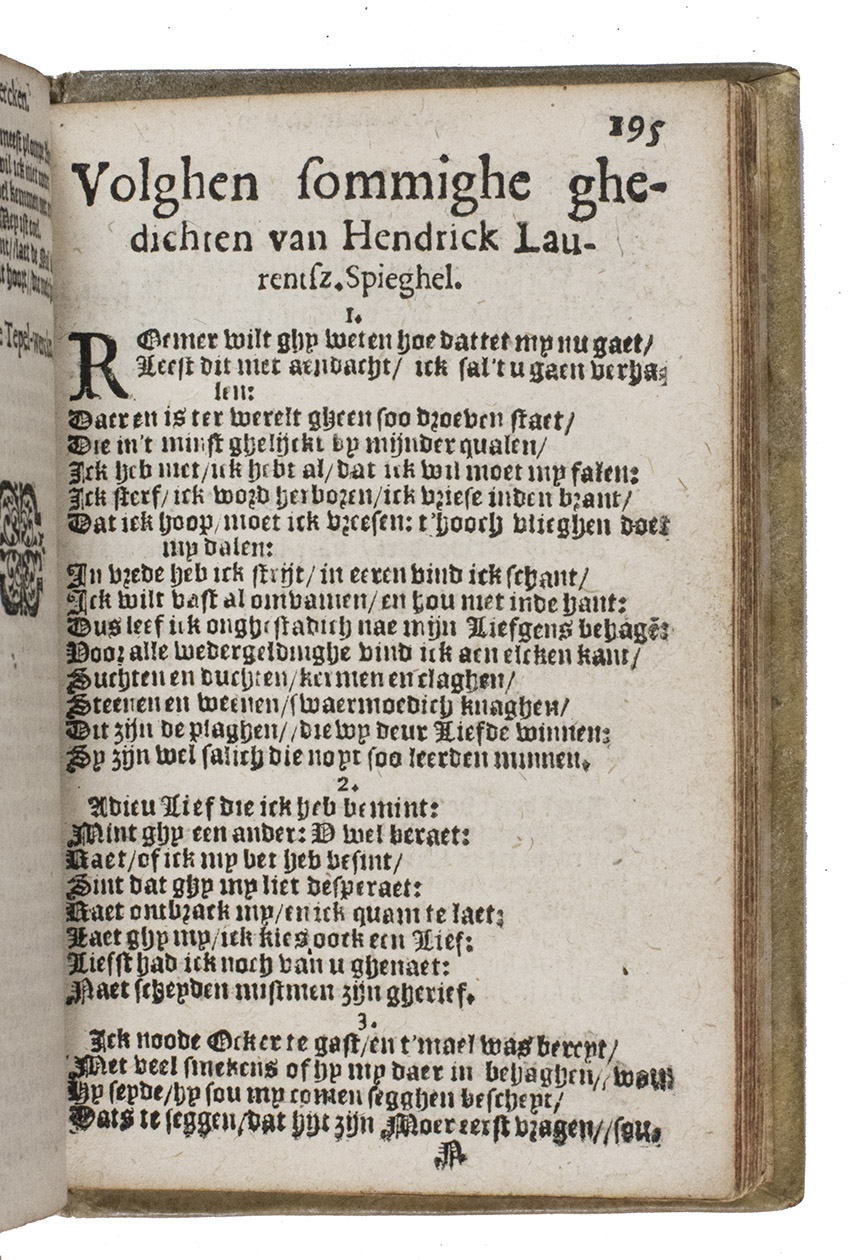 195
Volghen sommighe ghe-
dichten van Hendrick Lau-
rentsz. Spieghel.
1.
ROemer wilt ghy weten hoe dattet my nu gaet/
Leest dit met aendacht/ ick sal't u gaen verha-
len:
Daer en is ter werelt gheen soo droeven staet/
Die in't minst ghelijckt by mijnder qualen/
Ick heb niet/ick hebt al/dat ick wil moet my falen:
Ick sterf/ick word herboren/ick vriese inden brant/
Dat ick hoop/moet ick vreesen: t'hooch vlieghen doet
my dalen:
In vrede heb ick strijt/in eeren vind ick schant/
Ick wilt vast al omvamen/en hou niet inde hant:
Dus leef ick onghestadich nae mijn Liefgens behagē:
Voor alle wedergeldinghe vind ick aen elcken kant/
Suchten en duchten/kermen en claghen/
Steenen en weenen/swaermoedich knaghen/
Dit zijn de plaghen//die wy deur Liefde winnen:
Sy zijn wel salich die noyt soo leerden minnen.
2.
Adieu Lief die ick heb bemint:
Mint ghy een ander: O wel beraet:
Raet/of ick my bet heb besint/
Sint dat ghy my liet desperaet:
Raet ontbrack my/en ick quam te laet:
Laet ghy my/ick kies oock een Lief:
Liefst had ick noch van u ghenaet:
Naet scheyden mistmen zijn gherief.
3.
Ick noode Ocker te gast/en t'mael was bereyt/
Met veel smekens of hy my daer in behaghen//wou
Hy seyde/hy sou my comen segghen bescheyt/
Dats te seggen/dat hijt zijn Moer eerst vragen//sou.
N
ercken.
Tepel-wercken